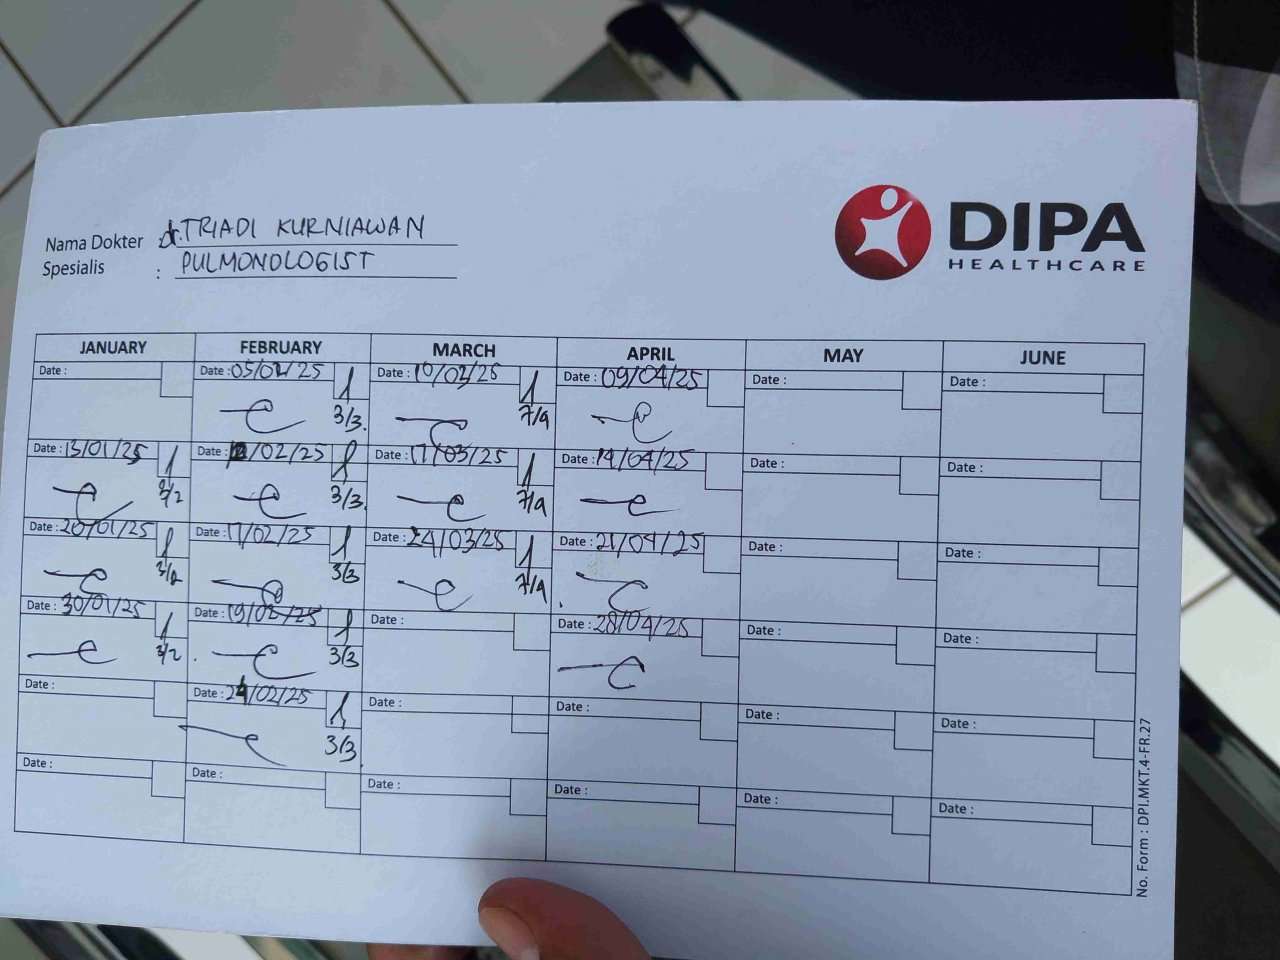 DIPA
HEALTHCARE
Nama Dokter : dr. TRIADI KURNIAWAN
Spesialis : PULMONOLOGIST
JANUARY FEBRUARY MARCH APRIL MAY JUNE
Date : Date : 05/02/25 Date : 10/02/25 Date : 09/04/25 Date : Date :
3/3. 7/4
Date : 13/01/25 Date : 12/02/25 Date : 17/03/25 Date : 14/04/25 Date : Date :
3/2 3/3. 7/4
Date : 20/01/25 Date : 17/02/25 Date : 24/03/25 Date : 21/04/25 Date : Date :
3/2 3/3 7/4
Date : 30/01/25 Date : 19/02/25 Date : Date : 28/04/25 Date : Date :
3/2 3/3
Date : Date : 24/02/25 Date : Date : Date : Date :
3/3
Date : Date : Date : Date : Date : Date :
No. Form : DPI.MKT.4-FR.27